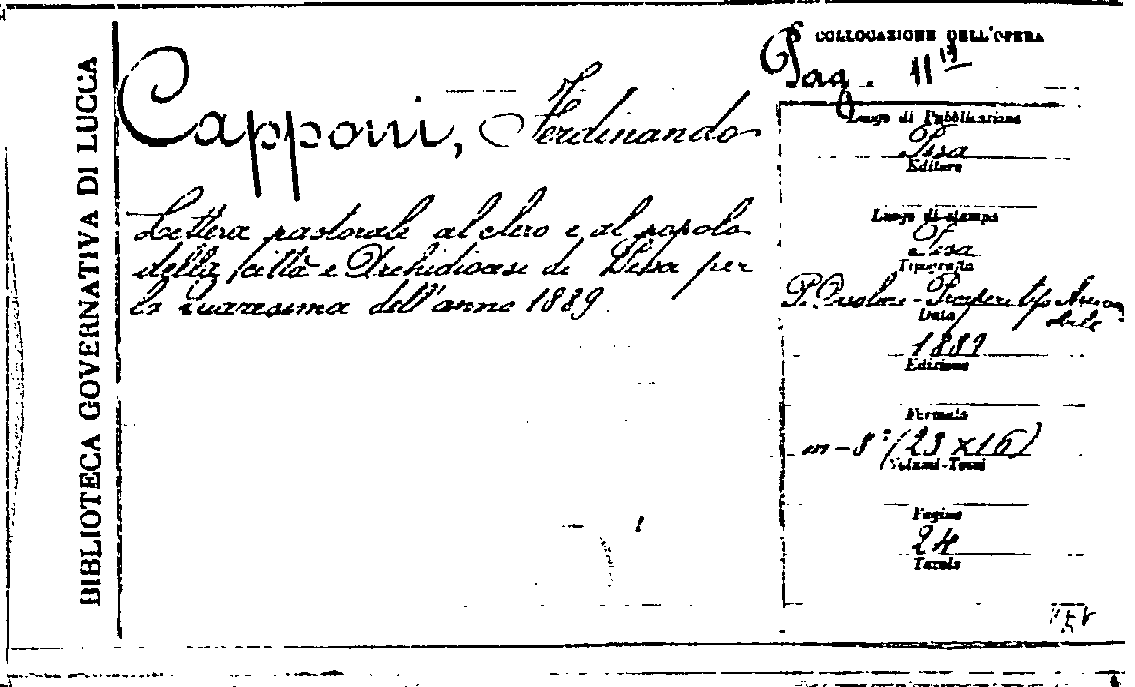 BIBLIOTECA GOVERNATIVA DI LUCCA
COLLOCAZIONE DELL'OPERA
Capponi, Ferdinando
Lettera pastorale al clero e al popolo
della città e Archidiocesi di Pisa per
la Quaresima dell'anno 1889.
Luogo di Pubblicazione
Pisa
Editore
Luogo di stampa
Pisa
Tipografia
Data
1889
Edizione
Formato
in-8° (23 x 16)
Volumi-Tomi
Pagine
24
Tavole